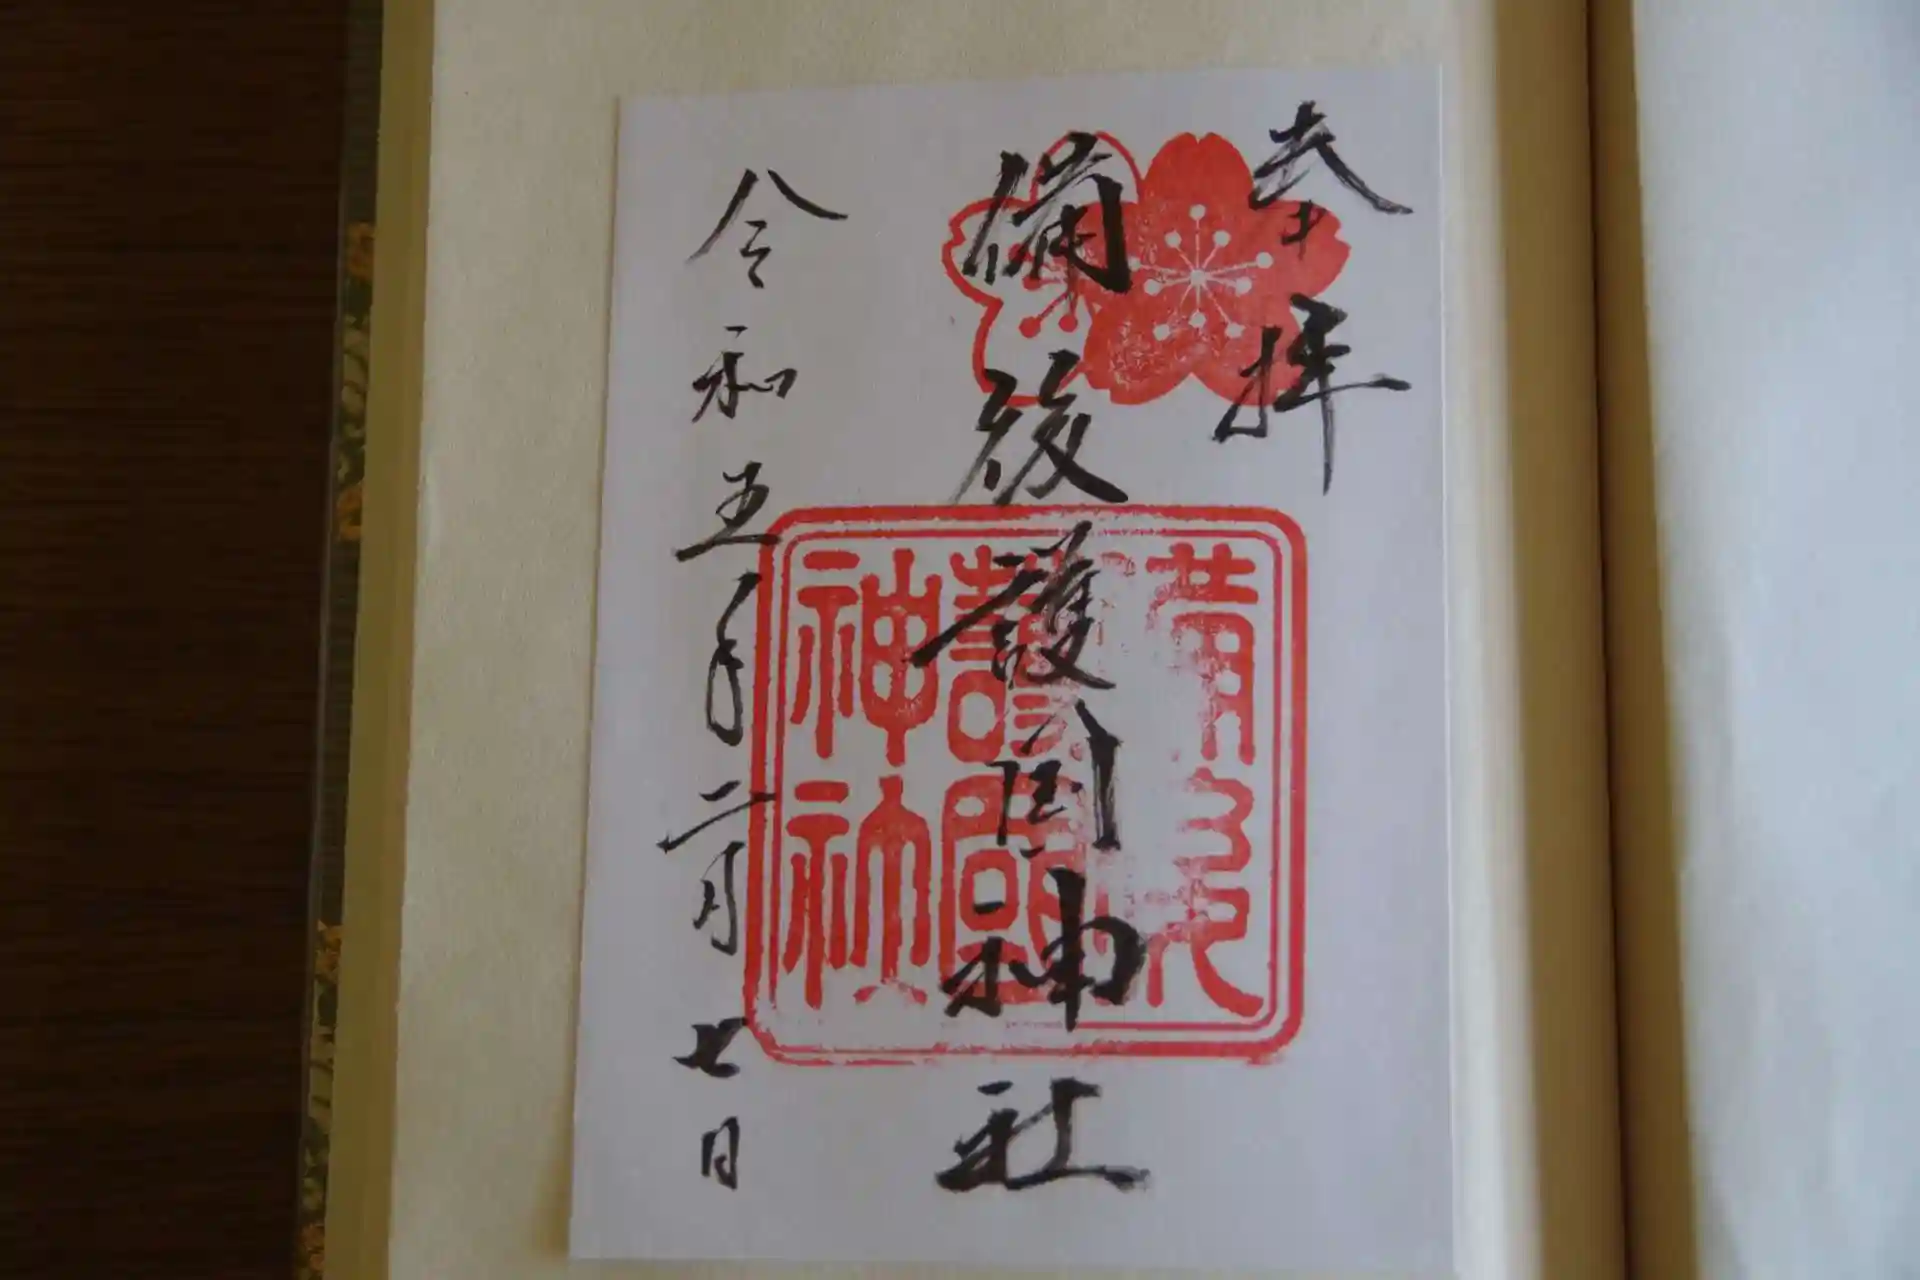 奉拝
備後護國神社
令和五年二月七日
備後
護國
神社